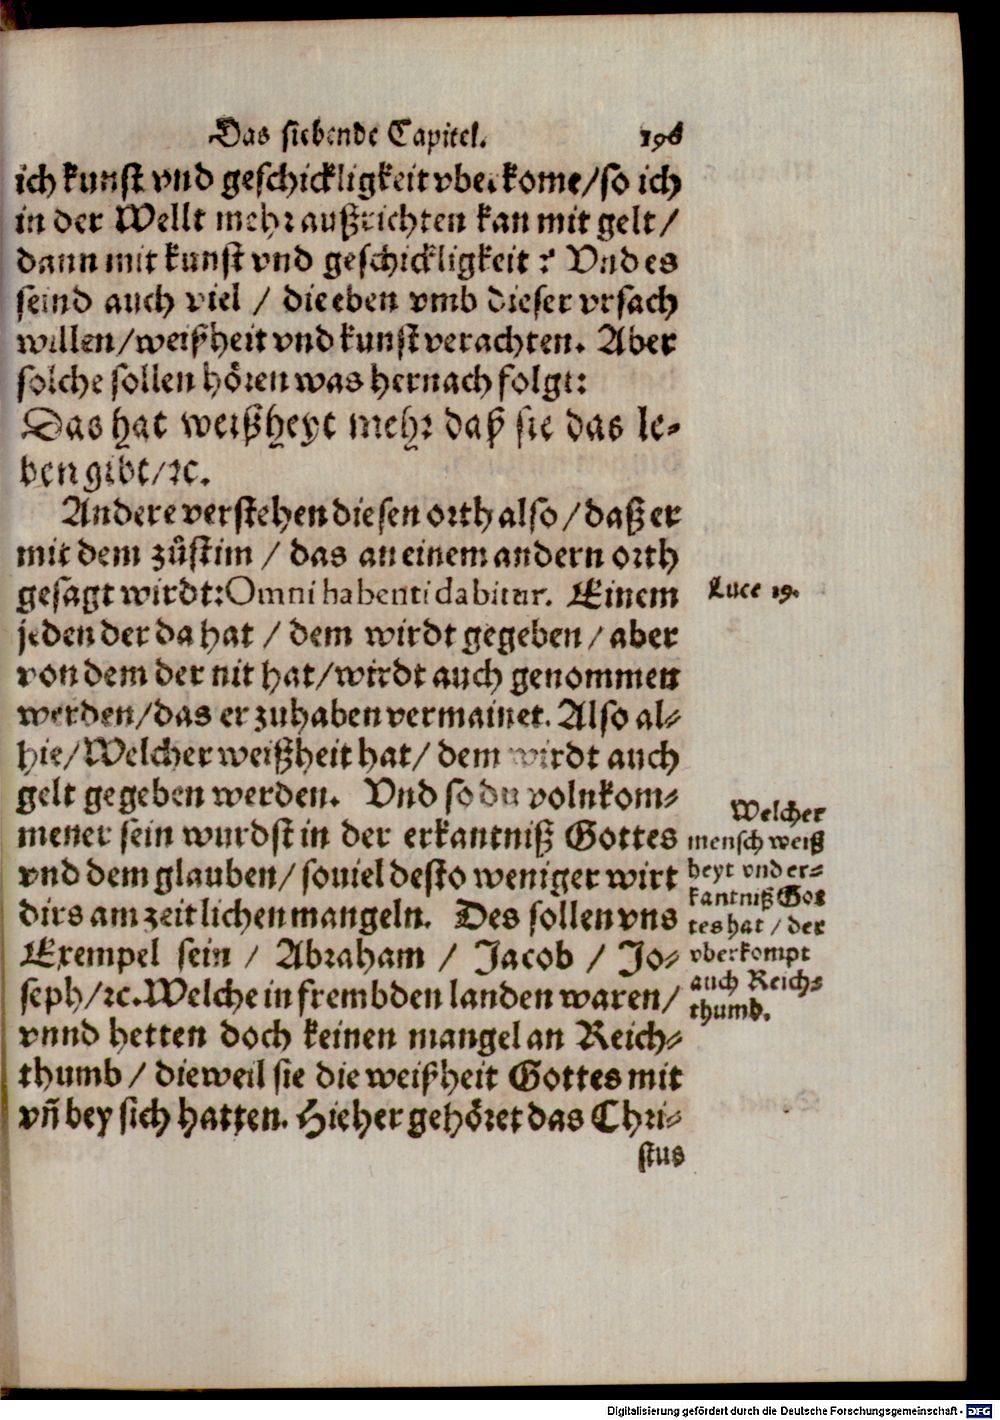 Das siebende Capitel. 196
ich kunst vnd geschickligkeit vberkome/so ich
in der Wellt mehr außrichten kan mit gelt/
dann mit kunst vnd geschickligkeit? Vnd es
seind auch viel / die eben vmb dieser vrsach
willen/weißheit vnd kunst verachten. Aber
solche sollen hören was hernach folgt:
Das hat weißheyt mehr daß sie das le-
ben gibt/ꝛc.
Andere verstehen diesen orth also/daß er
mit dem zůstim / das an einem andern orth
gesagt wirdt: Omni habenti dabitur. Einem
jeden der da hat / dem wirdt gegeben/ aber
von dem der nit hat/wirdt auch genommen
werden/das er zuhaben vermainet. Also al-
hie/Welcher weißheit hat/ dem wirdt auch
gelt gegeben werden. Vnd so du volnkom-
mener sein wurdst in der erkantniß Gottes
vnd dem glauben/ souiel desto weniger wirt
dirs am zeitlichen mangeln. Des sollen vns
Exempel sein / Abraham / Jacob / Jo-
seph/ꝛc. Welche in frembden landen waren/
vnnd hetten doch keinen mangel an Reich-
thumb / dieweil sie die weißheit Gottes mit
vñ bey sich hatten. Hieher gehöret das Chri-
stus
Luce 19.
Welcher
mensch weiß
heyt vnd er-
kantniß Got
tes hat / der
vberkompt
auch Reich-
thumb.
Digitalisierung gefördert durch die Deutsche Forschungsgemeinschaft - DFG